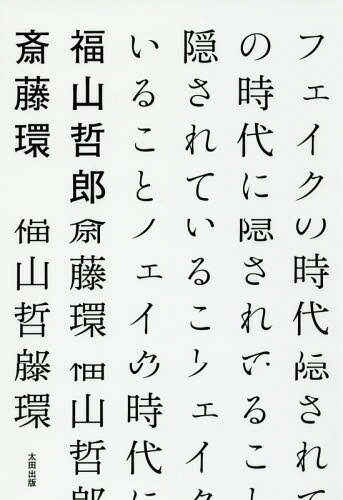 フェイクの時代隠されて
の時代に隠されているこ
隠されているこェイク
いることフェイの時代に
福山哲郎斎藤環福山哲郎
斎藤環福山哲環
太田出版